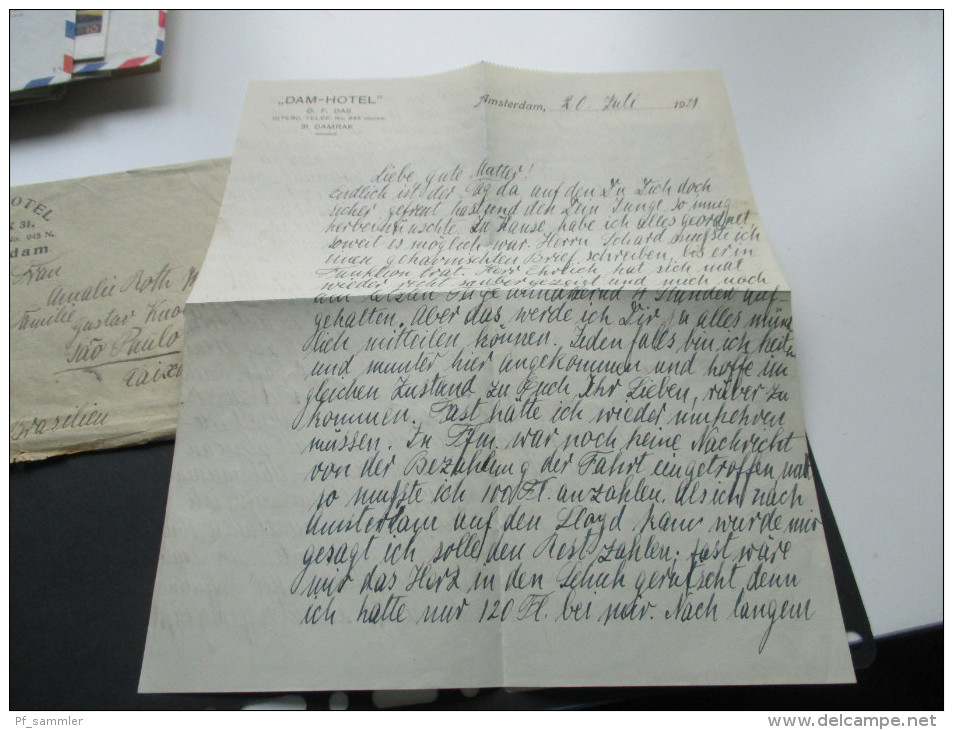 „DAM-HOTEL"
D. F. DAS
INTERC. TELEF. No. 945 NOORD
31 DAMRAK
Amsterdam, 20. Juli 1921
Liebe, gute Mutter!
endlich ist der Tag da, auf den Du Dich doch
sicher gefreut hast und den Dein Junge so innig
herbeiwünschte. Zu Hause habe ich alles geordnet,
soweit es möglich war. Herrn Schard mußte ich
einen geharnischten Brief schreiben, bis er in
Funktion trat. Herr Ehrlich hat sich mal
wieder recht sauber gezeigt und mich noch
am letzten Tage während 4 Stunden auf-
gehalten. Aber das werde ich Dir ja alles münd-
lich mitteilen können. Jedenfalls bin ich heil
und munter hier angekommen und hoffe im
gleichen Zustand zu Euch, Ihr Lieben, rüber zu
kommen. Fast hätte ich wieder umkehren
müssen. In Ffm. war noch keine Nachricht
von der Bezahlung der Fahrt eingetroffen und
so mußte ich 100 Fl. anzahlen. Als ich nach
Amsterdam auf den Lloyd kam wurde mir
gesagt ich solle den Rest zahlen; fast wäre
mir das Herz in den Schuh gerutscht, denn
ich hatte nur 120 Fl. bei mir. Nach langem
HOTEL
31.
No. 945 N.
dam
Frau
Amalie Roth
Familie
Gustav
São Paulo
Caixa
Brasilien
Pf_sammler
www.delcampe.net